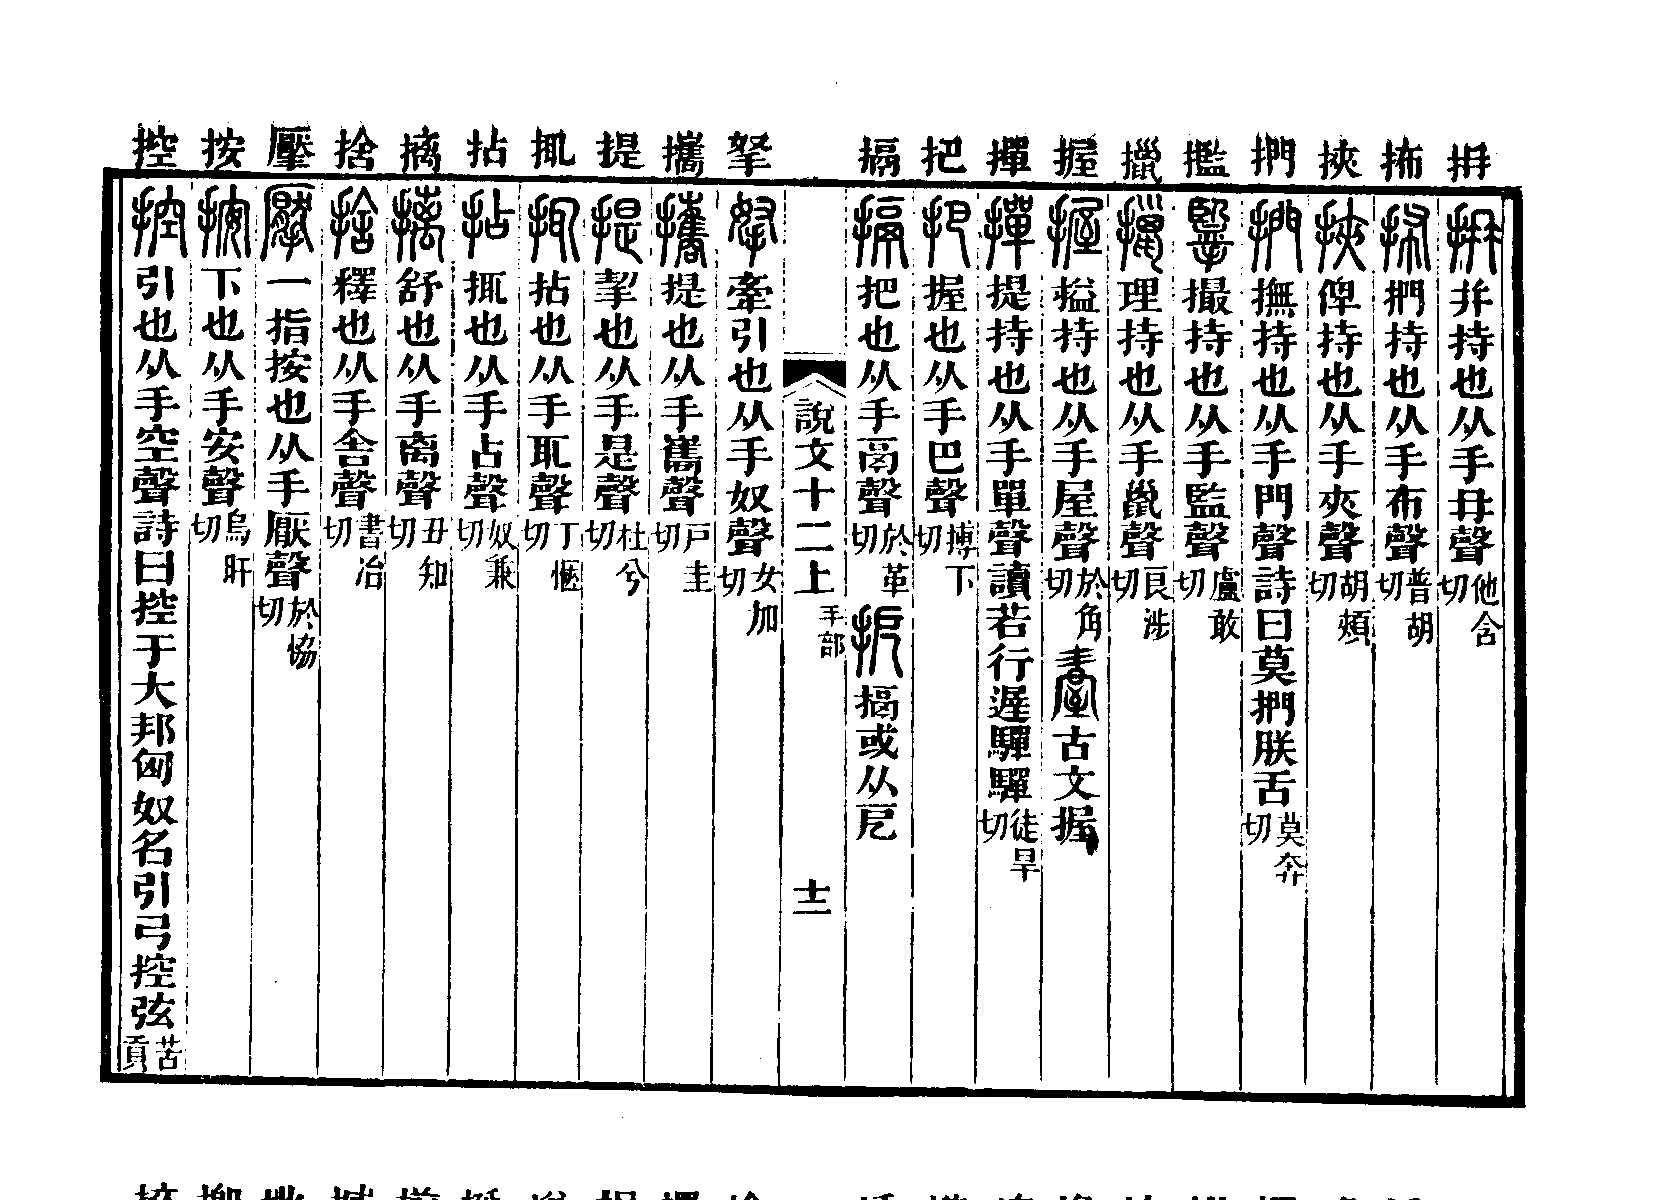 抍 㧊 挾 捫 㩜 擸 握 撣 把 搹
𢫨并持也从手冄聲他含切
㧊捫持也从手布聲普胡切
挾俾持也从手夾聲胡頰切
捫撫持也从手門聲詩曰莫捫朕舌莫奔切
㩜撮持也从手監聲盧敢切
擸理持也从手巤聲良涉切
握搤持也从手屋聲於角切 𡊊古文握
撣提持也从手單聲讀若行遲驒驒徒旱切
把握也从手巴聲搏下切
搹把也从手鬲聲於革切 㧖搹或从戹
說文十二上 手部 十二
拏 攜 提 㧗 拈 摛 捨 壓 按 控
拏牽引也从手奴聲女加切
攜提也从手巂聲戶圭切
提挈也从手是聲杜兮切
㧗拈也从手耴聲丁愜切
拈㧗也从手占聲奴兼切
摛舒也从手离聲丑知切
捨釋也从手舍聲書冶切
擪一指按也从手厭聲於協切
按下也从手安聲烏旰切
控引也从手空聲詩曰控于大邦匈奴名引弓控弦苦貢